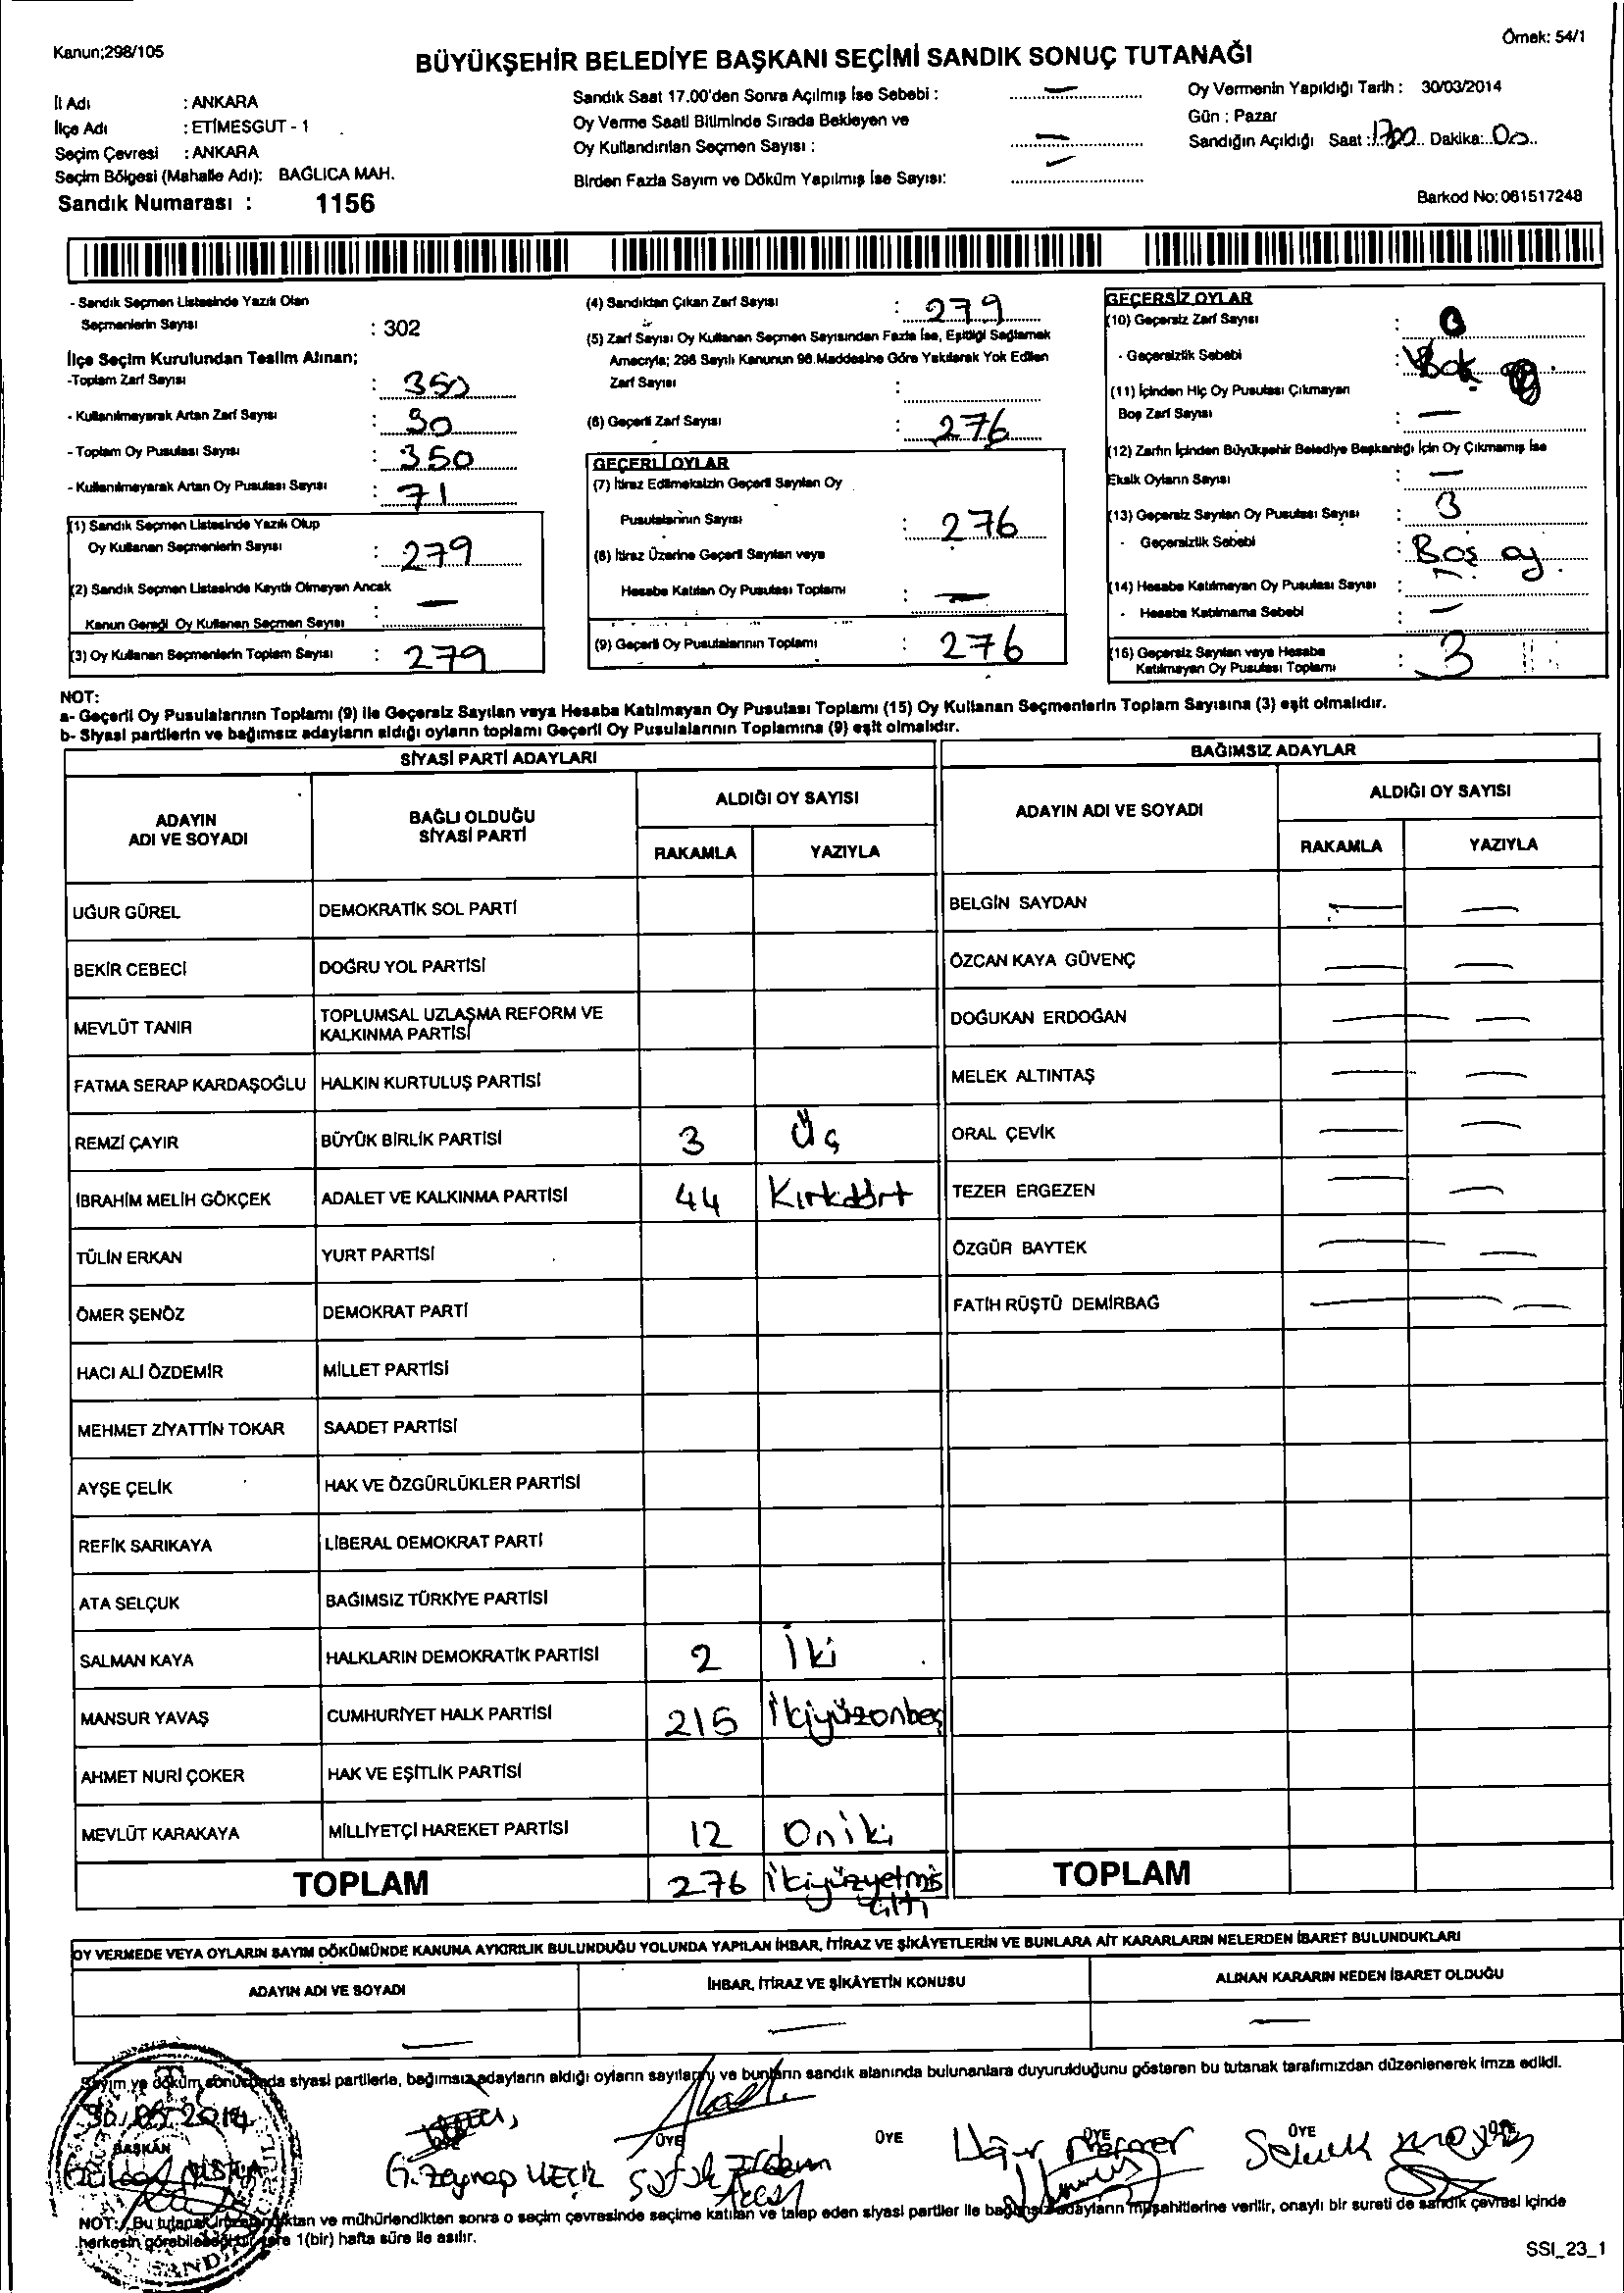 Kanun;298/105
Örnek: 54/1
BÜYÜKŞEHİR BELEDİYE BAŞKANI SEÇİMİ SANDIK SONUÇ TUTANAĞI
İl Adı : ANKARA
İlçe Adı : ETİMESGUT - 1
Seçim Çevresi : ANKARA
Seçim Bölgesi (Mahalle Adı): BAĞLICA MAH.
Sandık Numarası : 1156
Sandık Saat 17.00'den Sonra Açılmış İse Sebebi : —
Oy Verme Saati Bitiminde Sırada Bekleyen ve
Oy Kullandırılan Seçmen Sayısı : —
Birden Fazla Sayım ve Döküm Yapılmış İse Sayısı: —
Oy Vermenin Yapıldığı Tarih : 30/03/2014
Gün : Pazar
Sandığın Açıldığı Saat : 1700 Dakika: 00
Barkod No: 061517248
- Sandık Seçmen Listesinde Yazılı Olan
Seçmenlerin Sayısı : 302
İlçe Seçim Kurulundan Teslim Alınan;
-Toplam Zarf Sayısı : 350
- Kullanılmayarak Artan Zarf Sayısı : 90
- Toplam Oy Pusulası Sayısı : 350
- Kullanılmayarak Artan Oy Pusulası Sayısı : 71
(1) Sandık Seçmen Listesinde Yazılı Olup
Oy Kullanan Seçmenlerin Sayısı : 279
(2) Sandık Seçmen Listesinde Kayıtlı Olmayan Ancak
Kanun Gereği Oy Kullanan Seçmen Sayısı : —
(3) Oy Kullanan Seçmenlerin Toplam Sayısı : 279
(4) Sandıktan Çıkan Zarf Sayısı : 279
(5) Zarf Sayısı Oy Kullanan Seçmen Sayısından Fazla İse, Eşitliği Sağlamak
Amacıyla; 298 Sayılı Kanunun 98.Maddesine Göre Yakılarak Yok Edilen
Zarf Sayısı :
(6) Geçerli Zarf Sayısı : 276
GEÇERLİ OYLAR
(7) İtiraz Edilmeksizin Geçerli Sayılan Oy
Pusulalarının Sayısı : 276
(8) İtiraz Üzerine Geçerli Sayılan veya
Hesaba Katılan Oy Pusulası Toplamı : —
(9) Geçerli Oy Pusulalarının Toplamı : 276
GEÇERSİZ OYLAR
(10) Geçersiz Zarf Sayısı : 0
- Geçersizlik Sebebi : Yok
(11) İçinden Hiç Oy Pusulası Çıkmayan
Boş Zarf Sayısı : —
(12) Zarfın İçinden Büyükşehir Belediye Başkanlığı İçin Oy Çıkmamış İse
Eksik Oyların Sayısı : —
(13) Geçersiz Sayılan Oy Pusulası Sayısı : 3
- Geçersizlik Sebebi : Boş oy
(14) Hesaba Katılmayan Oy Pusulası Sayısı :
- Hesaba Katılmama Sebebi : —
(15) Geçersiz Sayılan veya Hesaba
Katılmayan Oy Pusulası Toplamı : 3
NOT:
a- Geçerli Oy Pusulalarının Toplamı (9) ile Geçersiz Sayılan veya Hesaba Katılmayan Oy Pusulası Toplamı (15) Oy Kullanan Seçmenlerin Toplam Sayısına (3) eşit olmalıdır.
b- Siyasi partilerin ve bağımsız adayların aldığı oyların toplamı Geçerli Oy Pusulalarının Toplamına (9) eşit olmalıdır.
SİYASİ PARTİ ADAYLARI
ADAYIN ADI VE SOYADI
BAĞLI OLDUĞU SİYASİ PARTİ
ALDIĞI OY SAYISI
RAKAMLA YAZIYLA
UĞUR GÜREL DEMOKRATİK SOL PARTİ
BEKİR CEBECİ DOĞRU YOL PARTİSİ
MEVLÜT TANIR TOPLUMSAL UZLAŞMA REFORM VE
KALKINMA PARTİSİ
FATMA SERAP KARDAŞOĞLU HALKIN KURTULUŞ PARTİSİ
REMZİ ÇAYIR BÜYÜK BİRLİK PARTİSİ 3 Üç
İBRAHİM MELİH GÖKÇEK ADALET VE KALKINMA PARTİSİ 44 Kırkdört
TÜLİN ERKAN YURT PARTİSİ
ÖMER ŞENÖZ DEMOKRAT PARTİ
HACI ALİ ÖZDEMİR MİLLET PARTİSİ
MEHMET ZİYATTİN TOKAR SAADET PARTİSİ
AYŞE ÇELİK HAK VE ÖZGÜRLÜKLER PARTİSİ
REFİK SARIKAYA LİBERAL DEMOKRAT PARTİ
ATA SELÇUK BAĞIMSIZ TÜRKİYE PARTİSİ
SALMAN KAYA HALKLARIN DEMOKRATİK PARTİSİ 2 İki
MANSUR YAVAŞ CUMHURİYET HALK PARTİSİ 215 İkiyüzonbeş
AHMET NURİ ÇOKER HAK VE EŞİTLİK PARTİSİ
MEVLÜT KARAKAYA MİLLİYETÇİ HAREKET PARTİSİ 12 Oniki
TOPLAM 276 İkiyüzyetmiş
altı
BAĞIMSIZ ADAYLAR
ADAYIN ADI VE SOYADI
ALDIĞI OY SAYISI
RAKAMLA YAZIYLA
BELGİN SAYDAN — —
ÖZCAN KAYA GÜVENÇ — —
DOĞUKAN ERDOĞAN — —
MELEK ALTINTAŞ — —
ORAL ÇEVİK — —
TEZER ERGEZEN — —
ÖZGÜR BAYTEK — —
FATİH RÜŞTÜ DEMİRBAĞ — —
TOPLAM
OY VERMEDE VEYA OYLARIN SAYIM DÖKÜMÜNDE KANUNA AYKIRILIK BULUNDUĞU YOLUNDA YAPILAN İHBAR, İTİRAZ VE ŞİKÂYETLERİN VE BUNLARA AİT KARARLARIN NELERDEN İBARET BULUNDUKLARI
ADAYIN ADI VE SOYADI
İHBAR, İTİRAZ VE ŞİKÂYETİN KONUSU
ALINAN KARARIN NEDEN İBARET OLDUĞU
— — —
Sayım ve döküm sonucunda siyasi partilerle, bağımsız adayların aldığı oyların sayılarını ve bunların sandık alanında bulunanlara duyurulduğunu gösteren bu tutanak tarafımızdan düzenlenerek imza edildi.
30.03.2014
BAŞKAN ÜYE ÜYE ÜYE ÜYE
G. Zeynep Uğur Selçuk
NOT: Bu tutanak imzalandıktan ve mühürlendikten sonra o seçim çevresinde seçime katılan ve talep eden siyasi partiler ile bağımsız adayların müşahitlerine verilir, onaylı bir sureti de sandık çevresi içinde
herkesin görebileceği bir yere 1(bir) hafta süre ile asılır.
SSI_23_1